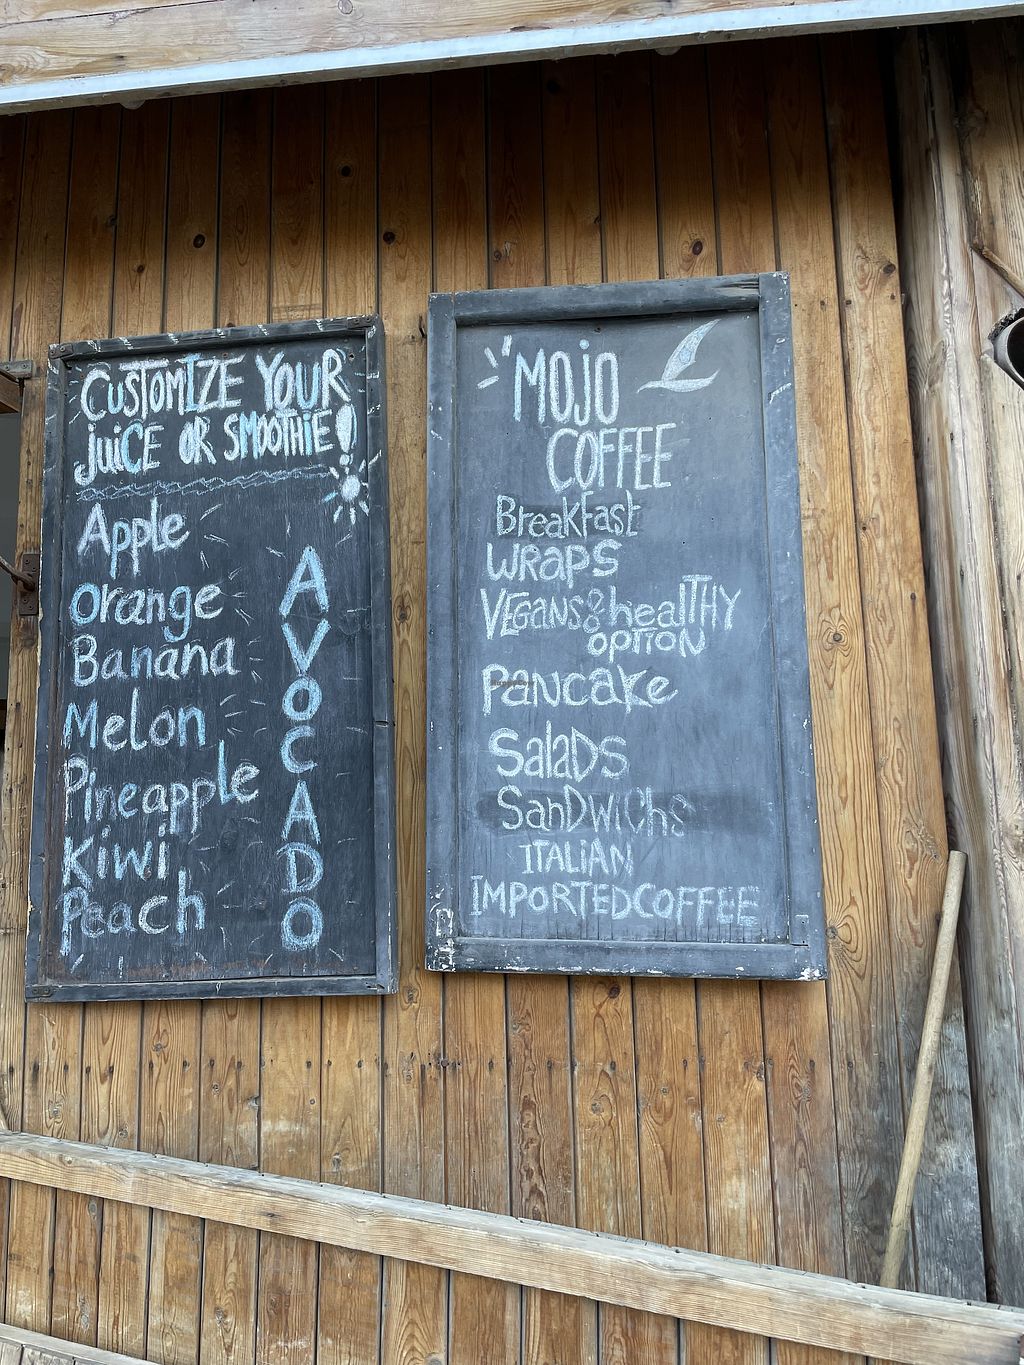 CUSTOMIZE YOUR
juiCE OR SMOOTHIE!
Apple
Orange
Banana
Melon
Pineapple
Kiwi
Peach
AVOCADO
"MOjO
COFFEE
BreakFast
WRAPS
VEGANS & heaLTHY
OPTION
PANcake
SalaDS
SanDWiChs
ITALiAN
IMPORTED COFFEE